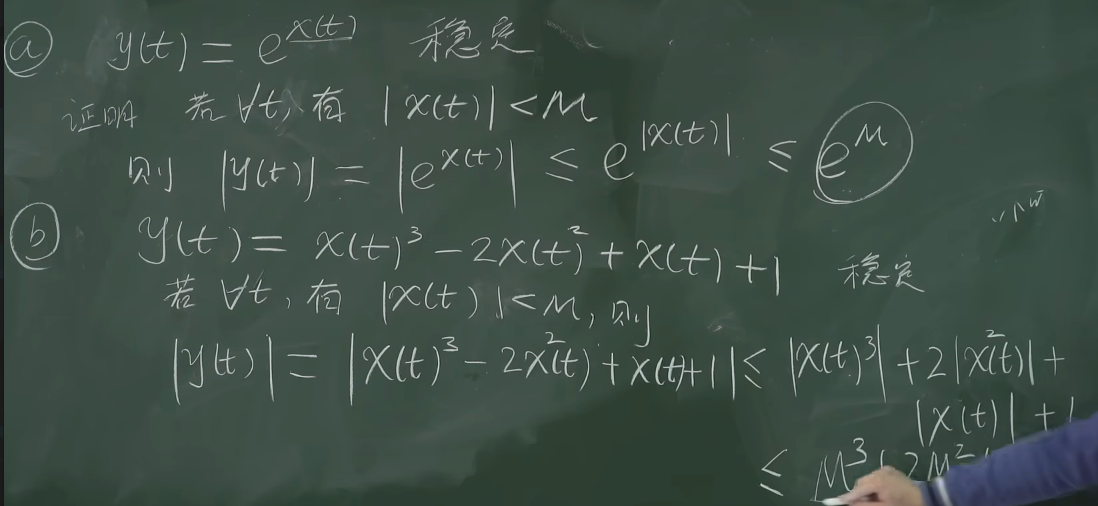 ⓐ y(t) = e^{x(t)} 稳定
证明 若∀t, 有 |x(t)| < M
则 |y(t)| = |e^{x(t)}| ≤ e^{|x(t)|} ≤ e^M
ⓑ y(t) = x(t)³ - 2x(t)² + x(t) + 1 稳定
若∀t, 有 |x(t)| < M, 则
|y(t)| = |x(t)³ - 2x²(t) + x(t) + 1| ≤ |x(t)³| + 2|x²(t)| +
|x(t)| + 1
≤ M³ + 2M²